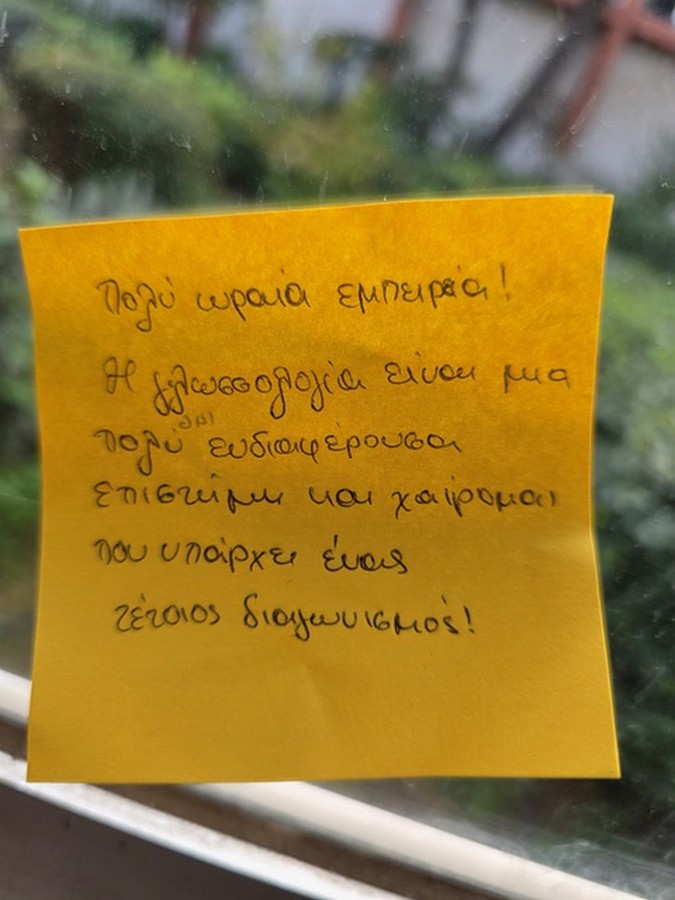 Πολύ ωραία εμπειρία!
Η γλωσσολογία είναι μια
πολύ ενδιαφέρουσα
επιστήμη και χαίρομαι
που υπάρχει ένας
τέτοιος διαγωνισμός!